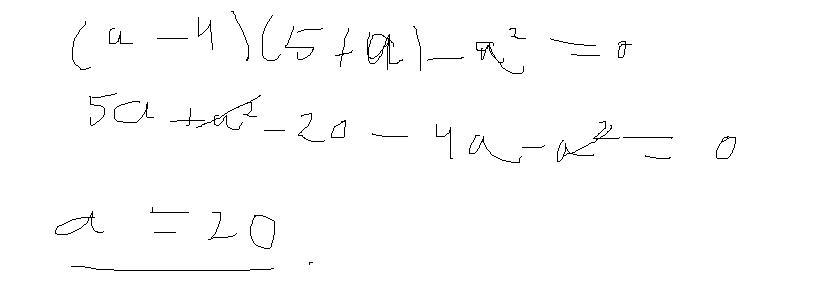 (a - 4)(5 + a) - a² = 0
5a + a² - 20 - 4a - a² = 0
a = 20.